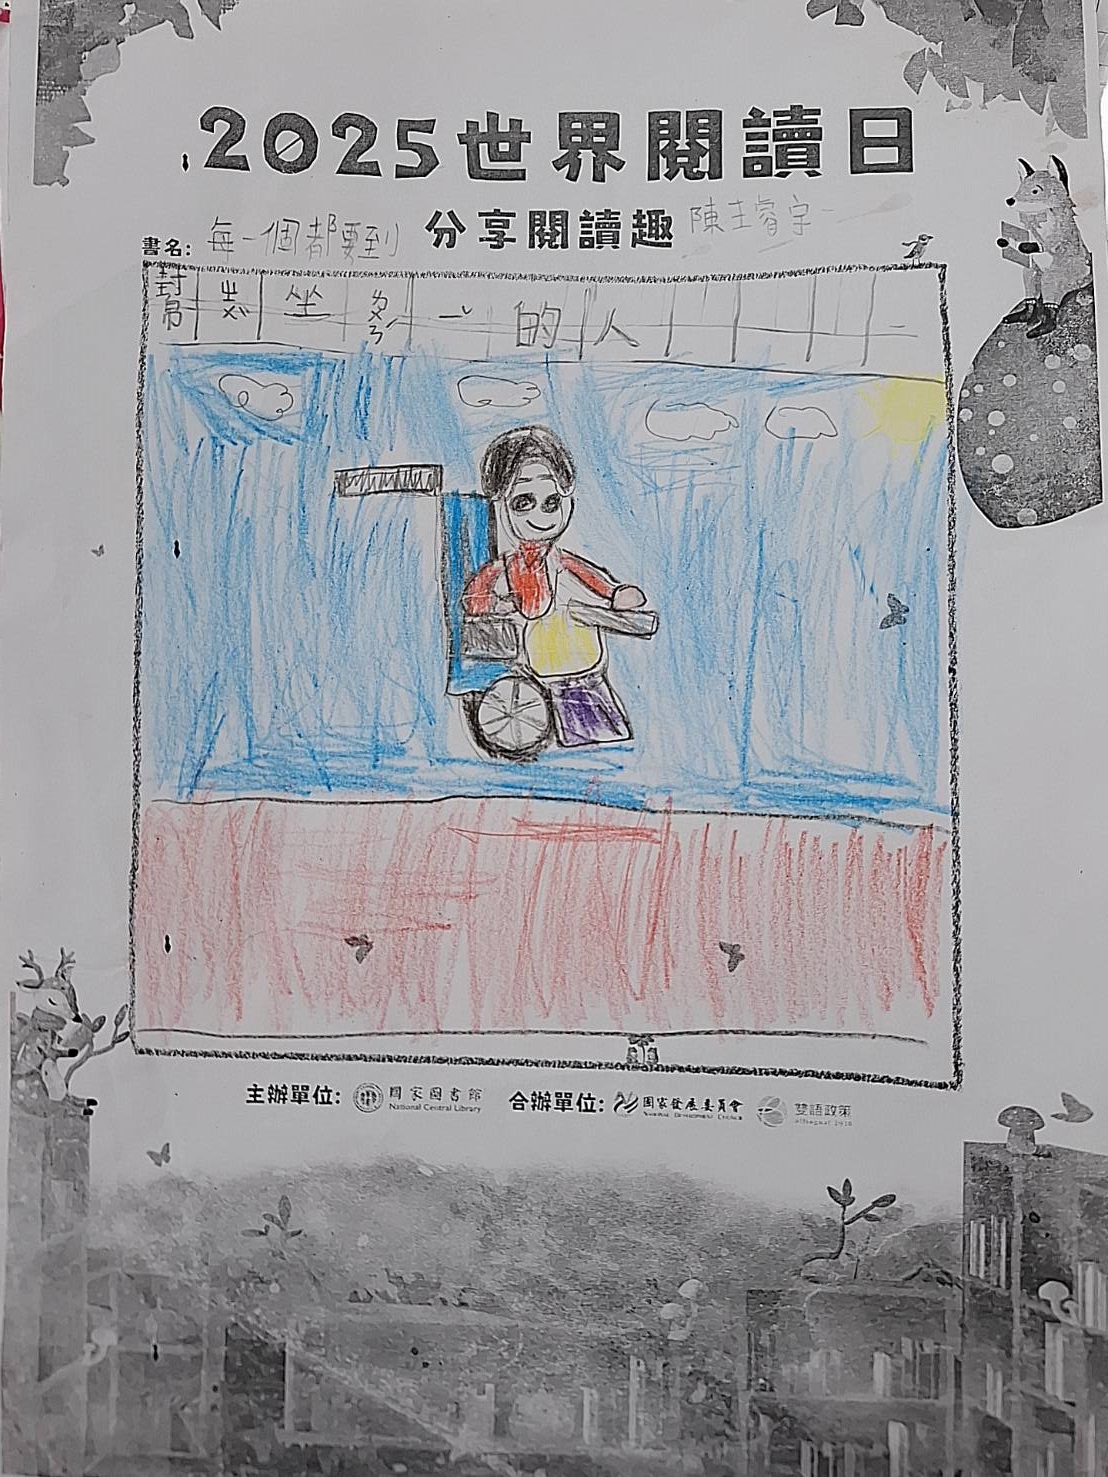 2025世界閱讀日
分享閱讀趣
書名: 每一個都要到
幫 坐 的人
主辦單位: 國家圖書館 National Central Library 合辦單位: 國家發展委員會 National Development Council 雙語政策